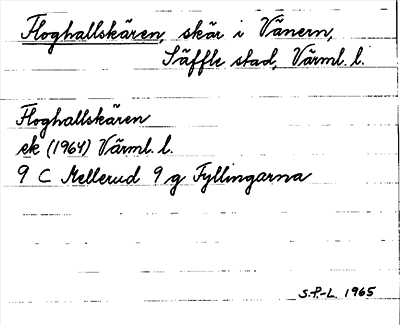 Floghallskären, skär i Vänern,
Säffle stad, Värml. l.
Floghallskären
ek (1964) Värml. l.
9 C Mellerud 9 g Fyllingarna
S.P.-L. 1965